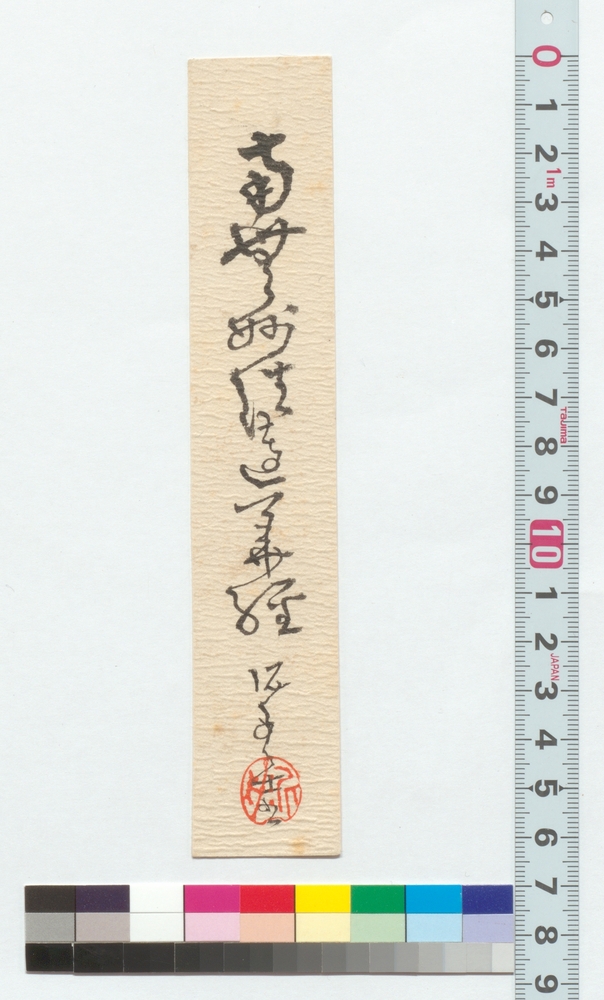 南無妙法蓮華経
0
1
2
1m
3
4
5
6
7
Tajima
8
9
10
1
2
JAPAN
3
4
5
6
7
8
9